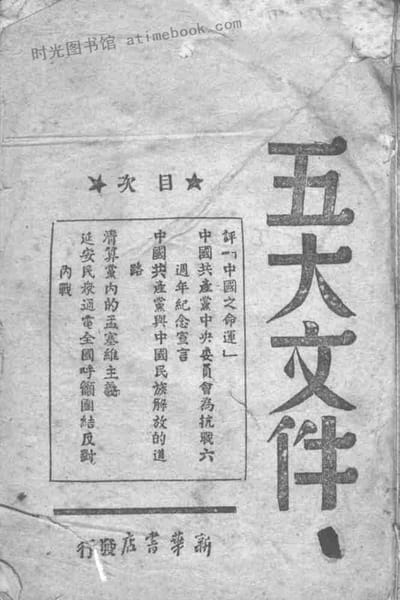 时光图书馆 atimebook.com
五大文件
★次目★
評「中國之命運」
中國共產黨中央委員會為抗戰六
週年紀念宣言
中國共產黨與中國民族解放的道
路
清算黨內的孟塞維主義
延安民衆通電全國呼籲團結反對
內戰
行發店書華新